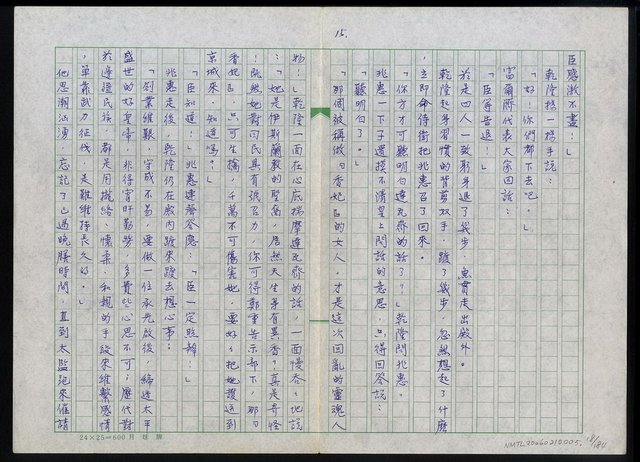 15.
臣感激不盡！」
乾隆揚一揚手說：
「好！你們都下去吧。」
富爾濟代表大家回話：
「臣等告退！」
於是四人一致躬身退了幾步，魚貫走出殿外。
乾隆起身習慣的背剪双手，踱了幾步，忽然想起了什麼
，立即命侍衛把兆惠召了回來。
「你方才可聽明白達瓦齊的話了？」乾隆問兆惠。
兆惠一下子還摸不清皇上問話的意思，只得回答說：
「聽明白了。」
「那個被稱做『香妃』的女人，才是這次回亂的靈魂人
物！」乾隆一面在心底揣摩達瓦齊的話，一面慢吞吞地說
：「她是伊斯蘭教的聖裔，居然天生身有異香？真是奇怪
！既然她對回民具有號召力，你可得鄭重告示部下，那『
香妃』，只可生擒，千萬不可傷害她，要好好把她護送到
京城來，知道嗎？」
「臣知道！」兆惠連聲答應：「臣一定照辦！」
兆惠走後，乾隆仍在殿內踱來踱去想心事：
「創業維艱，守成不易，要做一位承先啟後，締造太平
盛世的好皇帝，非得宵旰勤勞，多費些心思不可；歷代對
於邊疆民族，都是用攏絡、懷柔、和親的手段來維繫感情
，單靠武力征伐，是難維持長久的。」
他思潮洶湧，忘記了已過晚膳時間，直到太監跑來催請
24×25=600月球牌
NMTL20060210005.
18/184